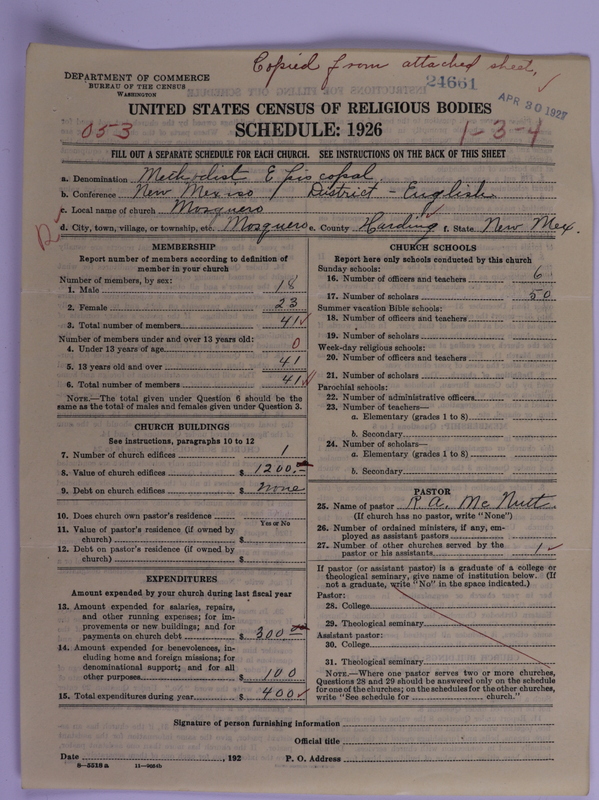 Copied from attached sheet.
DEPARTMENT OF COMMERCE
BUREAU OF THE CENSUS
WASHINGTON
24661
APR 30 1927
UNITED STATES CENSUS OF RELIGIOUS BODIES
053
SCHEDULE: 1926
1-3-4
FILL OUT A SEPARATE SCHEDULE FOR EACH CHURCH. SEE INSTRUCTIONS ON THE BACK OF THIS SHEET
a. Denomination Methodist Episcopal
b. Conference New Mexico / District - English
c. Local name of church Mosquero
d. City, town, village, or township, etc. Mosquero e. County Harding f. State New Mex.
MEMBERSHIP
Report number of members according to definition of
member in your church
Number of members, by sex:
1. Male 18
2. Female 23
3. Total number of members 41
Number of members under and over 13 years old:
4. Under 13 years of age 0
5. 13 years old and over 41
6. Total number of members 41
NOTE.—The total given under Question 6 should be
same as the total of males and females given under Question 3.
CHURCH BUILDINGS
See instructions, paragraphs 10 to 12
7. Number of church edifices 1
8. Value of church edifices $ 1200.–
9. Debt on church edifices $ none
10. Does church own pastor's residence
Yes or No
11. Value of pastor's residence (if owned by
church) $
12. Debt on pastor's residence (if owned by
church) $
EXPENDITURES
Amount expended by your church during last fiscal year
13. Amount expended for salaries, repairs,
and other running expenses; for im-
provements or new buildings; and for
payments on church debt $ 300.00
14. Amount expended for benevolences, in-
cluding home and foreign missions; for
denominational support; and for all
other purposes $ 100
15. Total expenditures during year $ 400
CHURCH SCHOOLS
Report here only schools conducted by this church
Sunday schools:
16. Number of officers and teachers 6
17. Number of scholars 50
Summer vacation Bible schools:
18. Number of officers and teachers
19. Number of scholars
Week-day religious schools:
20. Number of officers and teachers
21. Number of scholars
Parochial schools:
22. Number of administrative officers
23. Number of teachers—
a. Elementary (grades 1 to 8)
b. Secondary
24. Number of scholars—
a. Elementary (grades 1 to 8)
b. Secondary
PASTOR
25. Name of pastor R A. McNutt
(If church has no pastor, write "None")
26. Number of ordained ministers, if any, em-
ployed as assistant pastors
27. Number of other churches served by the
pastor or his assistants 1
If pastor (or assistant pastor) is a graduate of a college or
theological seminary, give name of institution below. (If
not a graduate, write "No" in the space indicated.)
Pastor:
28. College
29. Theological seminary
Assistant pastor:
30. College
31. Theological seminary
NOTE.—Where one pastor serves two or more churches,
Questions 28 and 29 should be answered only on the schedule
for one of the churches; on the schedules for the other churches,
write "See schedule for church."
Signature of person furnishing information
Official title
Date , 192 P. O. Address
8—5518 a